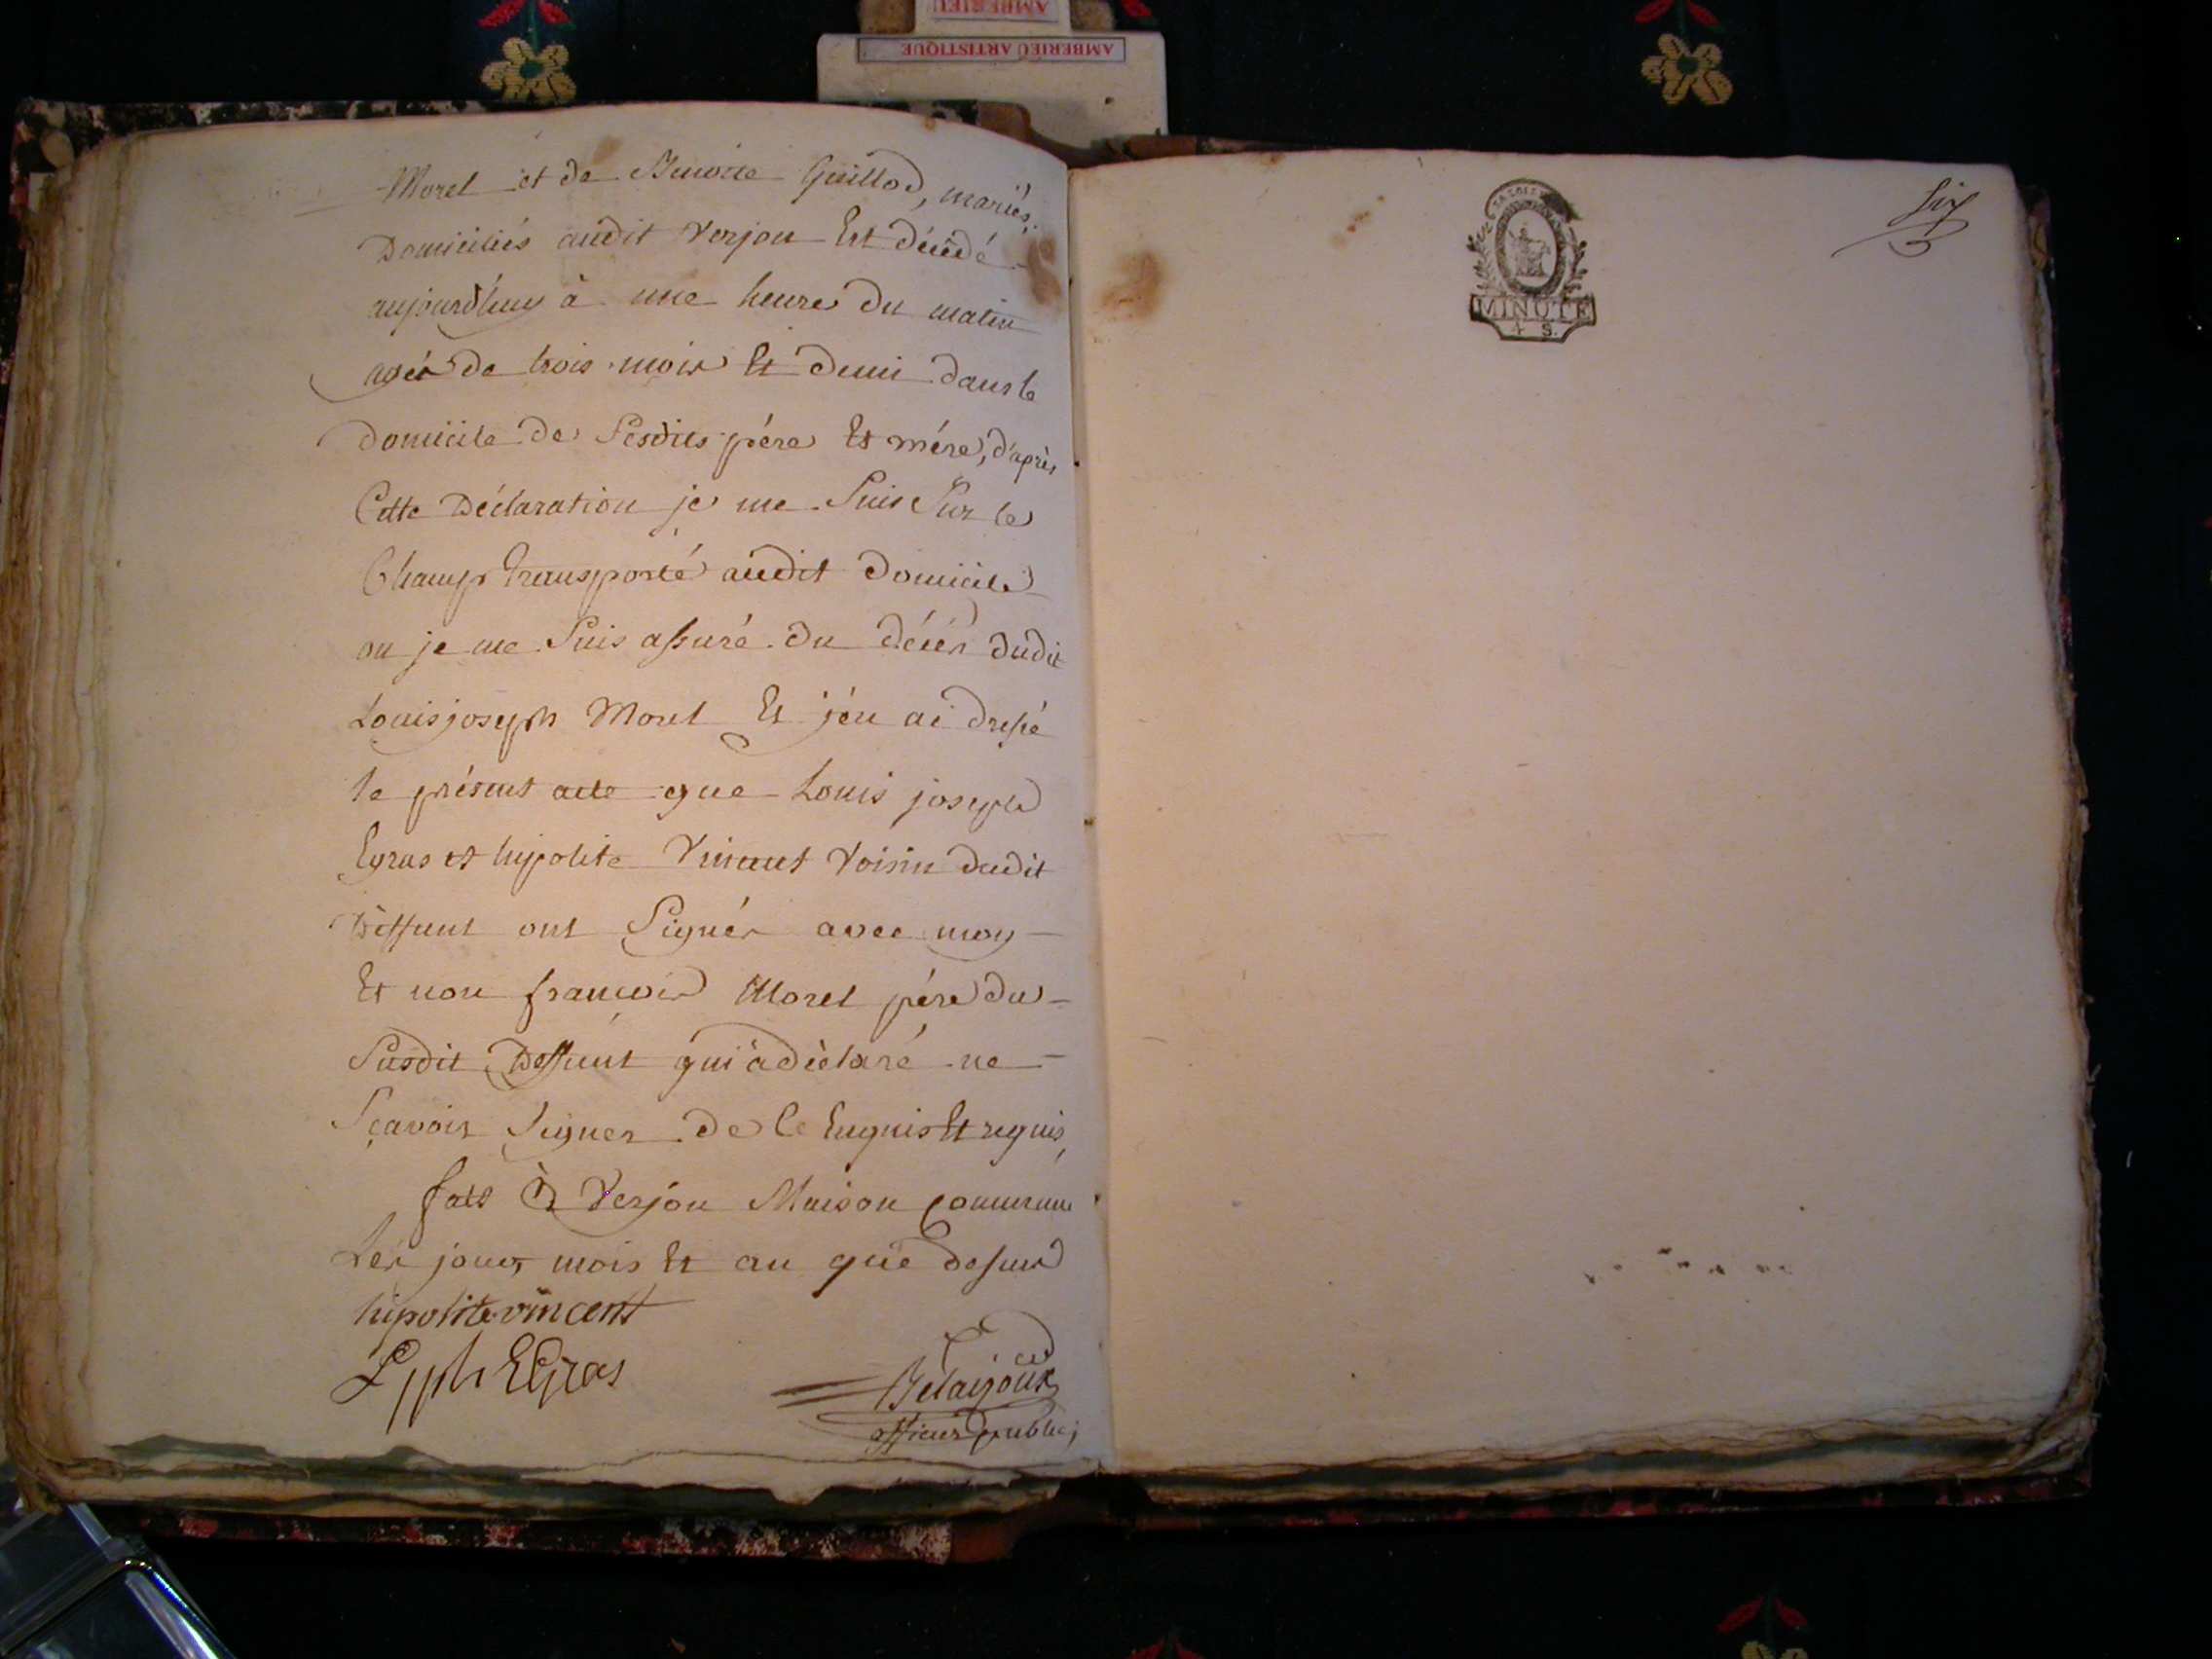 AMBERIEU
AMBERIEU ARTISTIQUE
Morel et de Benoite Guillod, mariés,
Domiciliés audit Verjon Est décédé
aujourd'huy à une heure du matin
agé de trois mois Et demi dans le
domicile de Sesdits pére Et mére, d'après
Cette Déclaration je me Suis Sur le
Champ transporté audit domicile
ou je me Suis assuré du décés dudit
Louis joseph Morel Et j'en ai dressé
le présent acte que Louis joseph
Egras et hipolite Vincent Voisin dudit
Deffunt ont Signés avec moy
Et non françois Morel pére du
Susdit Deffunt qui a déclaré ne
Sçavoir Signer de Ce Enquis Et requis,
fait à Verjon Maison commune
Les jour, mois Et an que dessus
hipolite vincent
L jph EGras
officier public
Six
MINUTE
4 S.